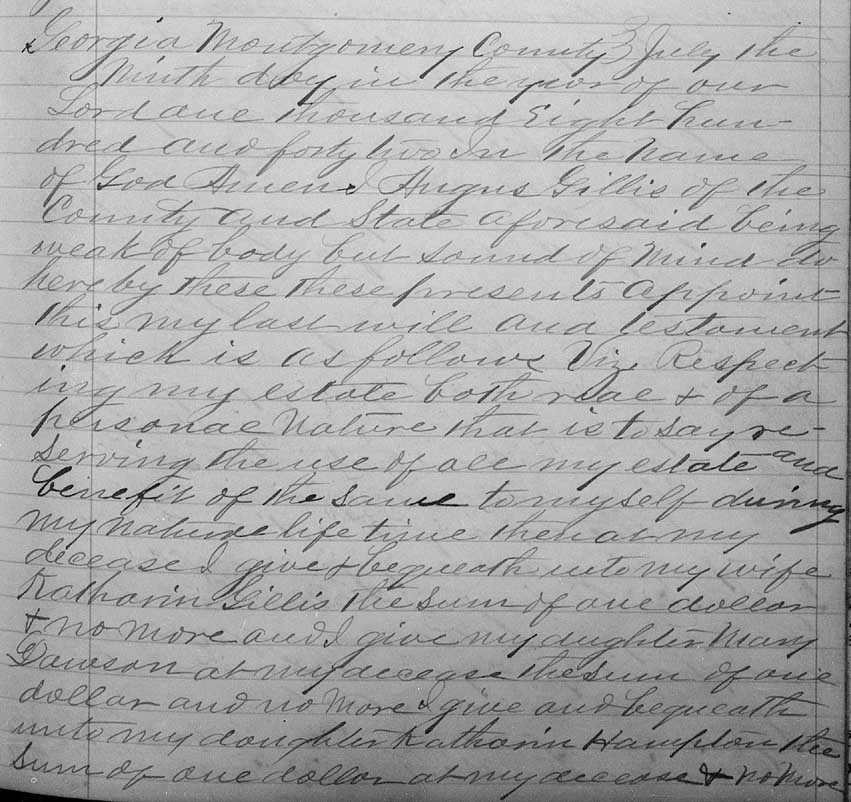 Georgia Montgomery County } July the
Ninth day in the year of our
Lord one thousand Eight hun-
dred and forty two In the Name
of God Amen I Angus Gillis of the
County and State aforesaid being
weak of body but sound of Mind do
hereby these these presents appoint
this my last will and testament
which is as follows Viz Respect
ing my estate both real & of a
personal Nature that is to say re-
serving the use of all my estate and
benefit of the same to myself during
my nature life time then at my
decease I give & bequeath unto my wife
Katharin Gillis the sum of one dollar
& no more and I give my daughter Mary
Dawson at my decease the sum of one
dollar and no more I give and bequeath
unto my daughter Katharin Hampton the
sum of one dollar at my decease & no more